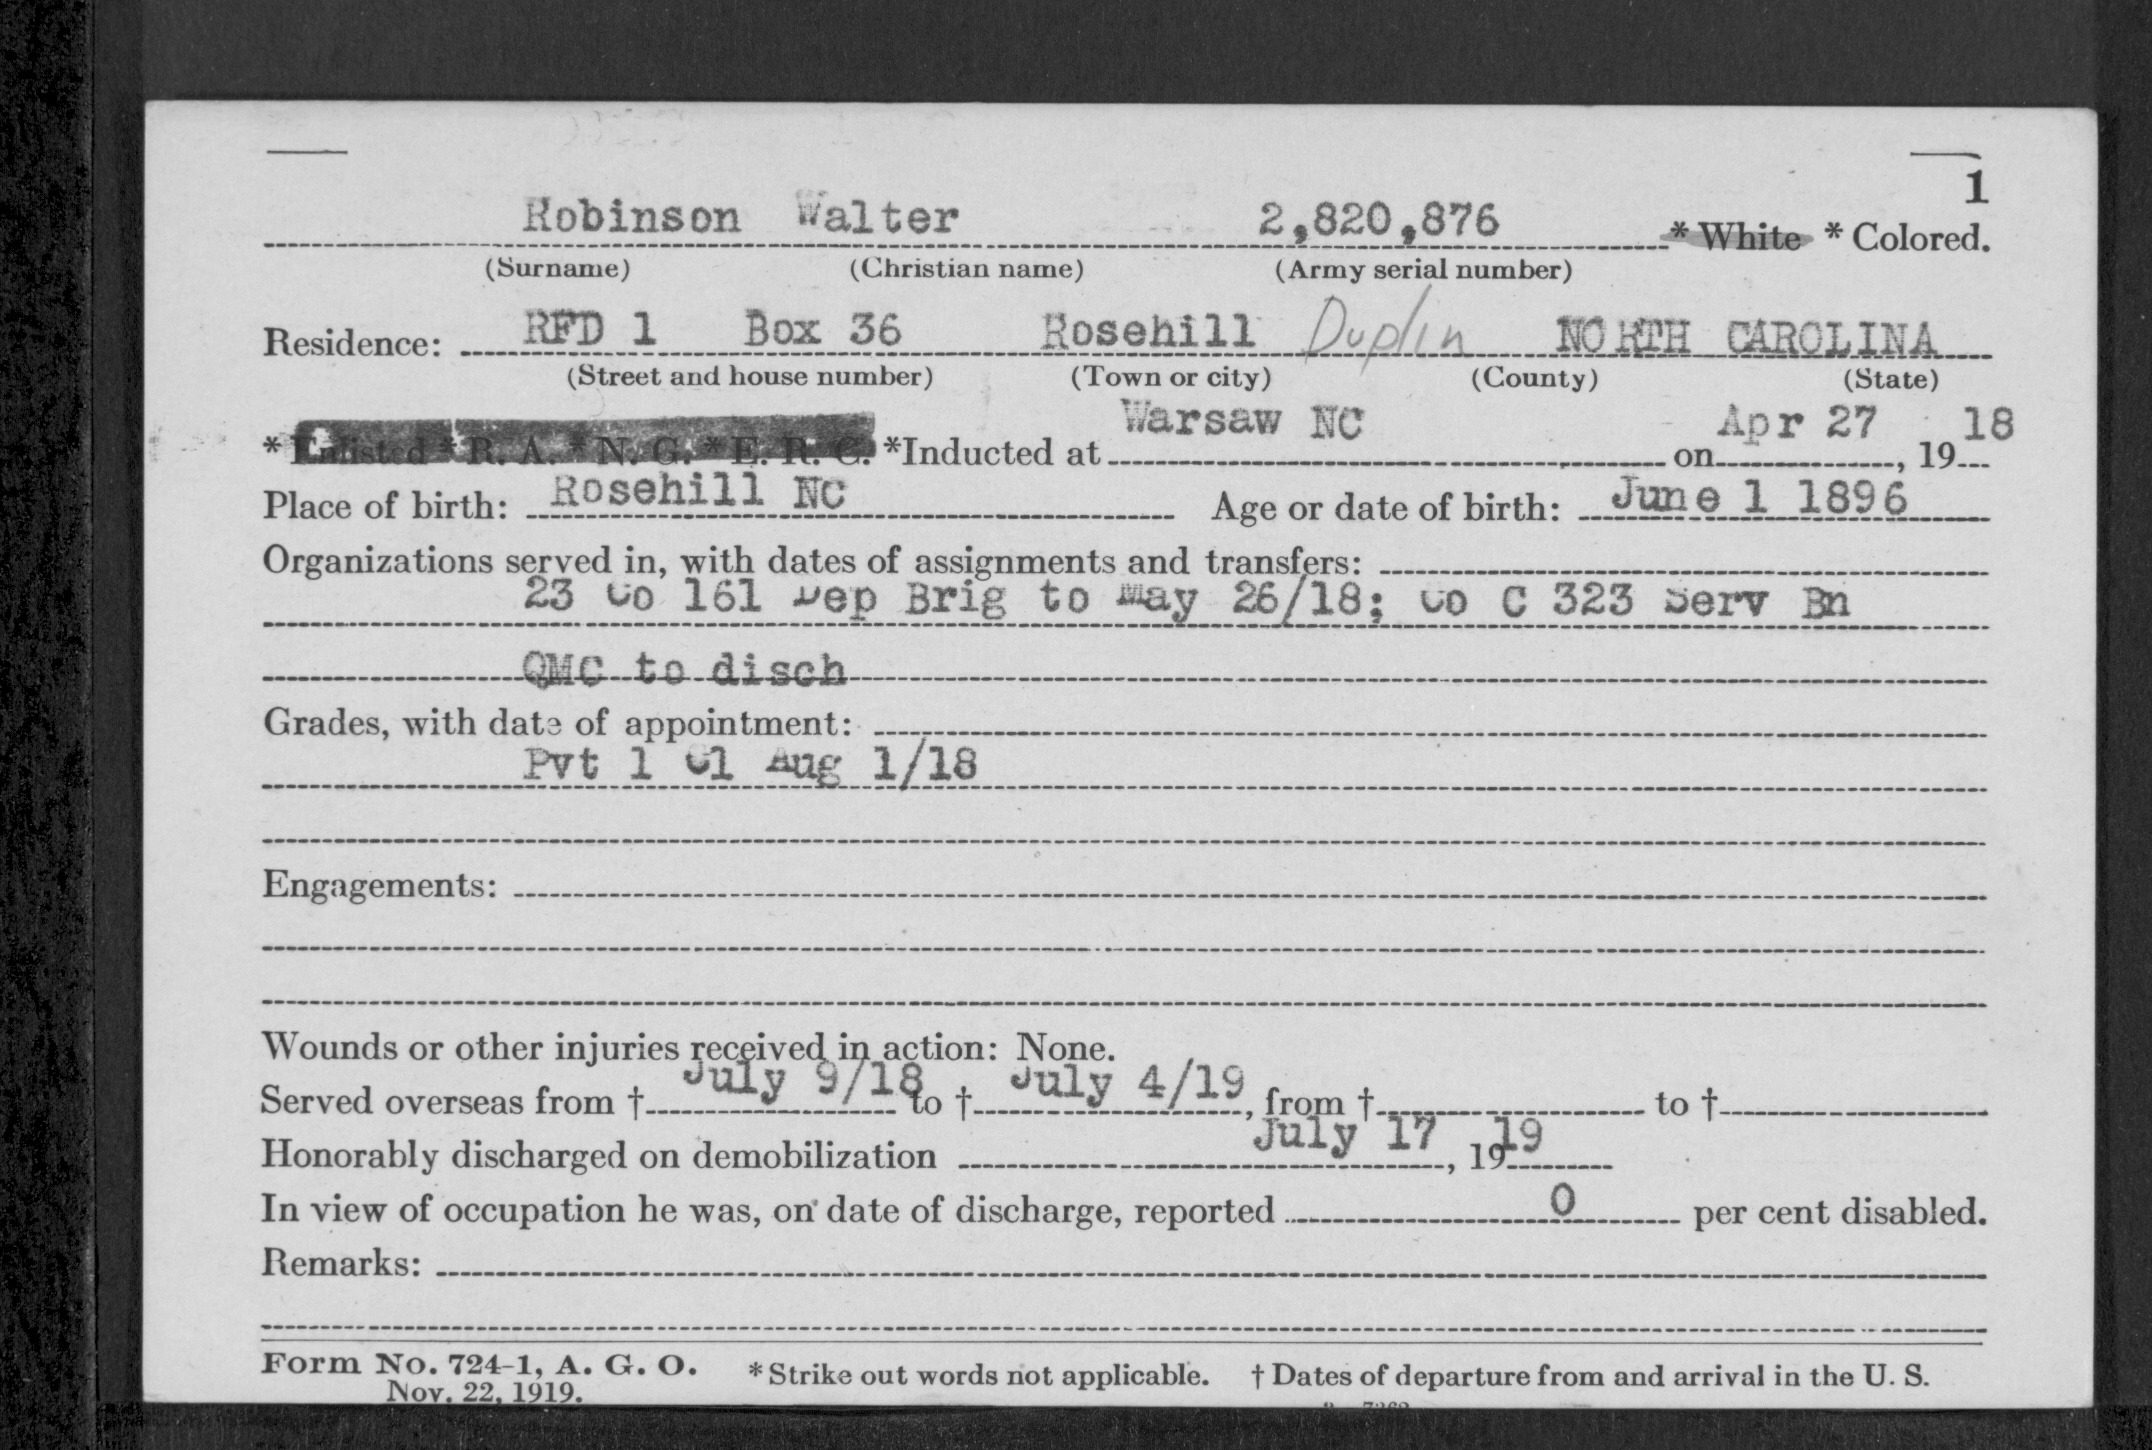 1
Robinson Walter 2,820,876 * White * Colored.
(Surname) (Christian name) (Army serial number)
Residence: RFD 1 Box 36 Rosehill Duplin NORTH CAROLINA
(Street and house number) (Town or city) (County) (State)
* Enlisted * R. A. * N. G. * E. R. C. *Inducted at Warsaw NC on Apr 27, 19 18
Place of birth: Rosehill NC Age or date of birth: June 1 1896
Organizations served in, with dates of assignments and transfers:
23 Co 161 Dep Brig to May 26/18; Co C 323 Serv Bn
QMC to disch
Grades, with date of appointment:
Pvt 1 Cl Aug 1/18
Engagements:
Wounds or other injuries received in action: None.
Served overseas from † July 9/18 to † July 4/19, from † to †
Honorably discharged on demobilization July 17, 19 19
In view of occupation he was, on date of discharge, reported 0 per cent disabled.
Remarks:
Form No. 724-1, A. G. O. * Strike out words not applicable. † Dates of departure from and arrival in the U. S.
Nov. 22, 1919.